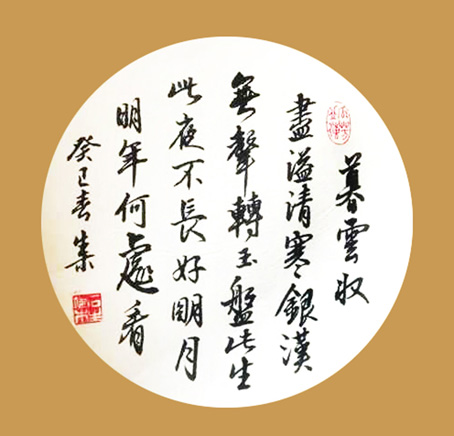 暮雲收
盡溢清寒銀漢
無聲轉玉盤此生
此夜不長好明月
明年何處看
癸巳春